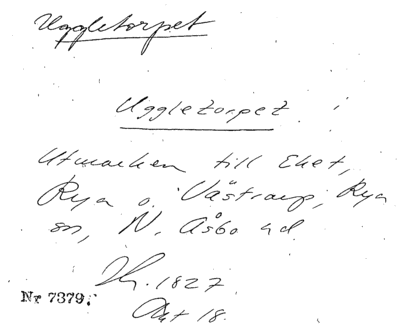 Uggletorpet
Uggletorpet
Utmarken till Eket,
Rya o. Västraup, Rya
sn, N. Åsbo hd
1827.
Nr 7379.
Akt 18.